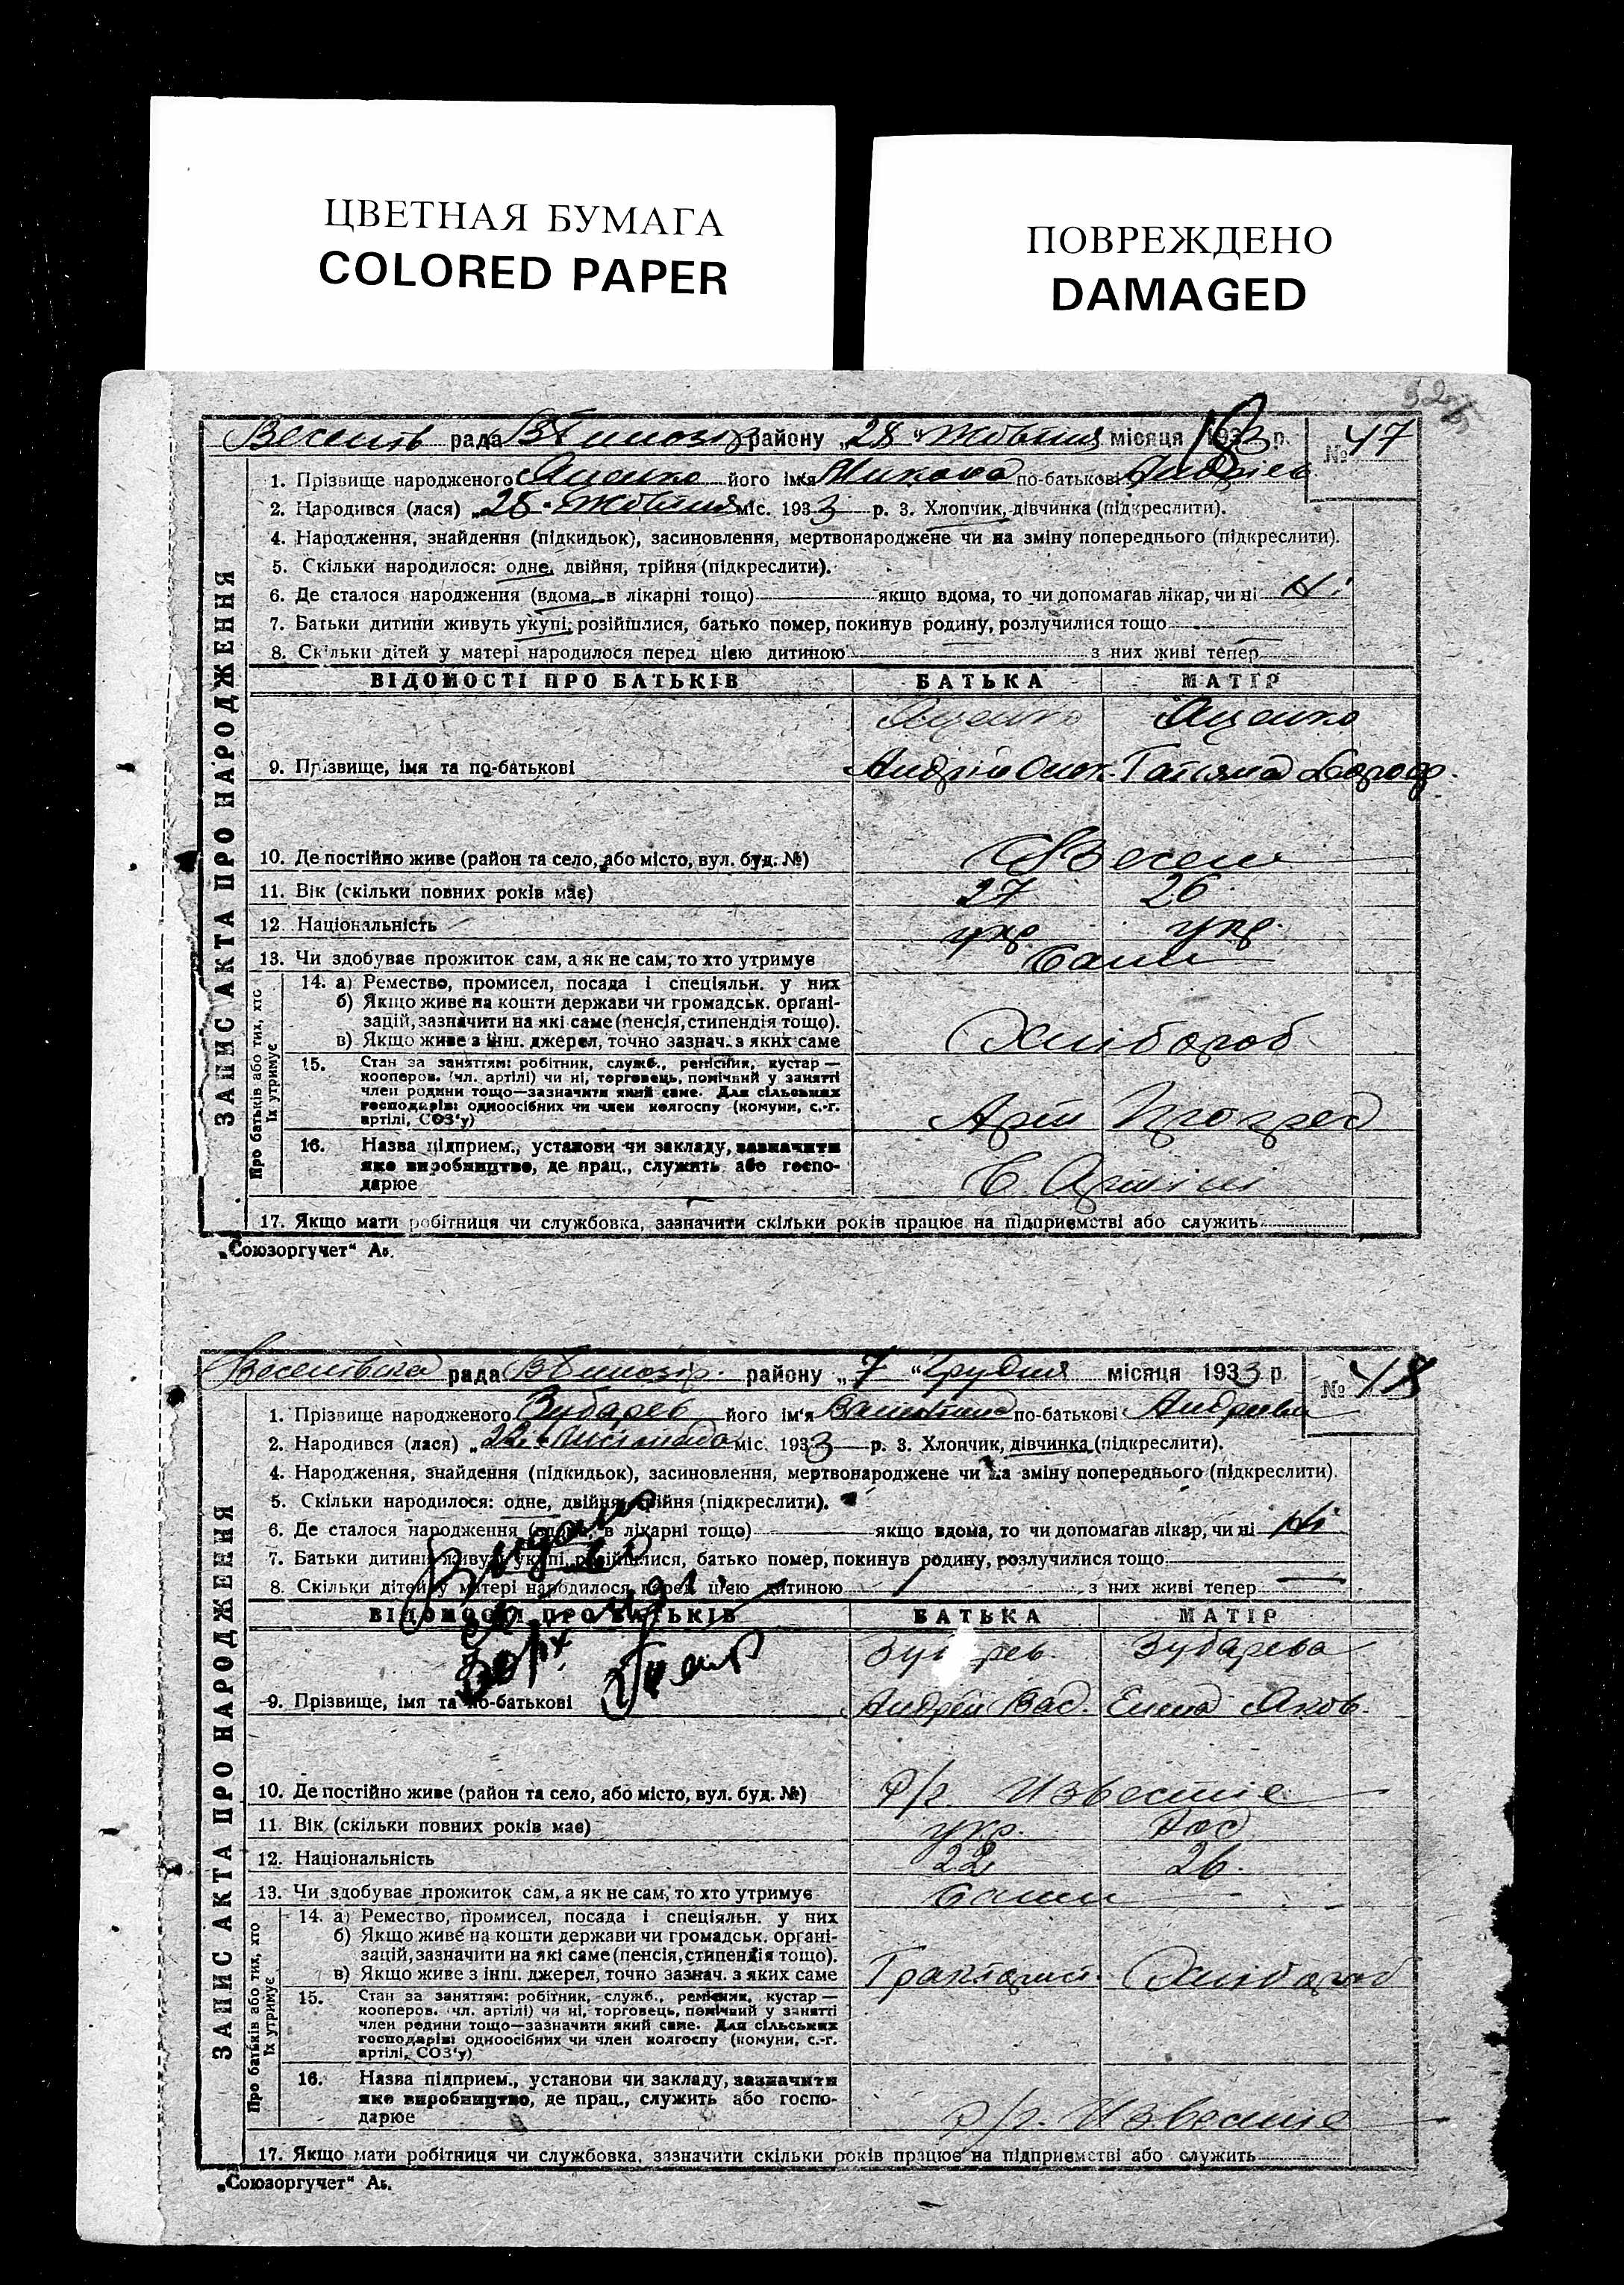 ЦВЕТНАЯ БУМАГА
COLORED PAPER
ПОВРЕЖДЕНО
DAMAGED
рада району „28“ Жовтня місяця 193 р. № 47
1. Прізвище народженого Яценко його ім'я Микола по-батькові Андріев
2. Народився (лася) „25“ Жовтня міс. 1933 р. 3. Хлопчик, дівчинка (підкреслити).
4. Народження, знайдення (підкидьок), засиновлення, мертвонароджене чи на зміну попереднього (підкреслити).
5. Скільки народилося: одне, двійня, трійня (підкреслити).
6. Де сталося народження (вдома, в лікарні тощо) якщо вдома, то чи допомагав лікар, чи ні Ні
7. Батьки дитини живуть укупі, розійшлися, батько помер, покинув родину, розлучилися тощо
8. Скільки дітей у матері народилося перед цією дитиною — з них живі тепер —
ЗАПИС АКТА ПРО НАРОДЖЕННЯ
ВІДОМОСТІ ПРО БАТЬКІВ БАТЬКА МАТІР
Яценко Яценко
9. Прізвище, імя та по-батькові Андрій Татяна
10. Де постійно живе (район та село, або місто, вул. буд. №)
11. Вік (скільки повних років має) 27 26
12. Національність укр. укр.
13. Чи здобуває прожиток сам, а як не сам, то хто утримує Сами
Про батьків або тих, хто їх утримує
14. а) Ремество, промисел, посада і спеціяльн. у них
б) Якщо живе на кошти держави чи громадськ. органі-
зацій, зазначити на які саме (пенсія, стипендія тощо).
в) Якщо живе з інш. джерел, точно зазнач. з яких саме Хлібороб
15. Стан за заняттям: робітник, служб., ремісник, кустар —
кооперов. (чл. артілі) чи ні, торговець, помічний у занятті
член родини тощо—зазначити який саме. Для сільських
господарів: одноосібних чи член колгоспу (комуни, с.-г.
артілі, СОЗ'у)
16. Назва підприєм., установи чи закладу, зазначити
яке виробництво, де прац., служить або госпо-
дарює
17. Якщо мати робітниця чи службовка, зазначити скільки років працює на підприємстві або служить
„Союзоргучет“ Ав.
рада району „7“ Грудня місяця 1933 р. № 48
1. Прізвище народженого Зубарев його ім'я Валентина по-батькові Андреевна
2. Народився (лася) „22“ Листопада міс. 1933 р. 3. Хлопчик, дівчинка (підкреслити).
4. Народження, знайдення (підкидьок), засиновлення, мертвонароджене чи на зміну попереднього (підкреслити).
5. Скільки народилося: одне, двійня, трійня (підкреслити).
6. Де сталося народження (вдома, в лікарні тощо) якщо вдома, то чи допомагав лікар, чи ні Ні
7. Батьки дитини живуть укупі, розійшлися, батько помер, покинув родину, розлучилися тощо
8. Скільки дітей у матері народилося перед цією дитиною — з них живі тепер —
ЗАПИС АКТА ПРО НАРОДЖЕННЯ
ВІДОМОСТІ ПРО БАТЬКІВ БАТЬКА МАТІР
Зубарев Зубарева
9. Прізвище, імя та по-батькові Андрей Вас. Елена Яков.
10. Де постійно живе (район та село, або місто, вул. буд. №) Известие
11. Вік (скільки повних років має) укр.
12. Національність 22 26.
13. Чи здобуває прожиток сам, а як не сам, то хто утримує Сами
Про батьків або тих, хто їх утримує
14. а) Ремество, промисел, посада і спеціяльн. у них
б) Якщо живе на кошти держави чи громадськ. органі-
зацій, зазначити на які саме (пенсія, стипендія тощо).
в) Якщо живе з інш. джерел, точно зазнач. з яких саме Тракторист. Хлібороб
15. Стан за заняттям: робітник, служб., ремісник, кустар —
кооперов. (чл. артілі) чи ні, торговець, помічний у занятті
член родини тощо—зазначити який саме. Для сільських
господарів: одноосібних чи член колгоспу (комуни, с.-г.
артілі, СОЗ'у)
16. Назва підприєм., установи чи закладу, зазначити
яке виробництво, де прац., служить або госпо-
дарює Известие
17. Якщо мати робітниця чи службовка, зазначити скільки років працює на підприємстві або служить
„Союзоргучет“ Ав.